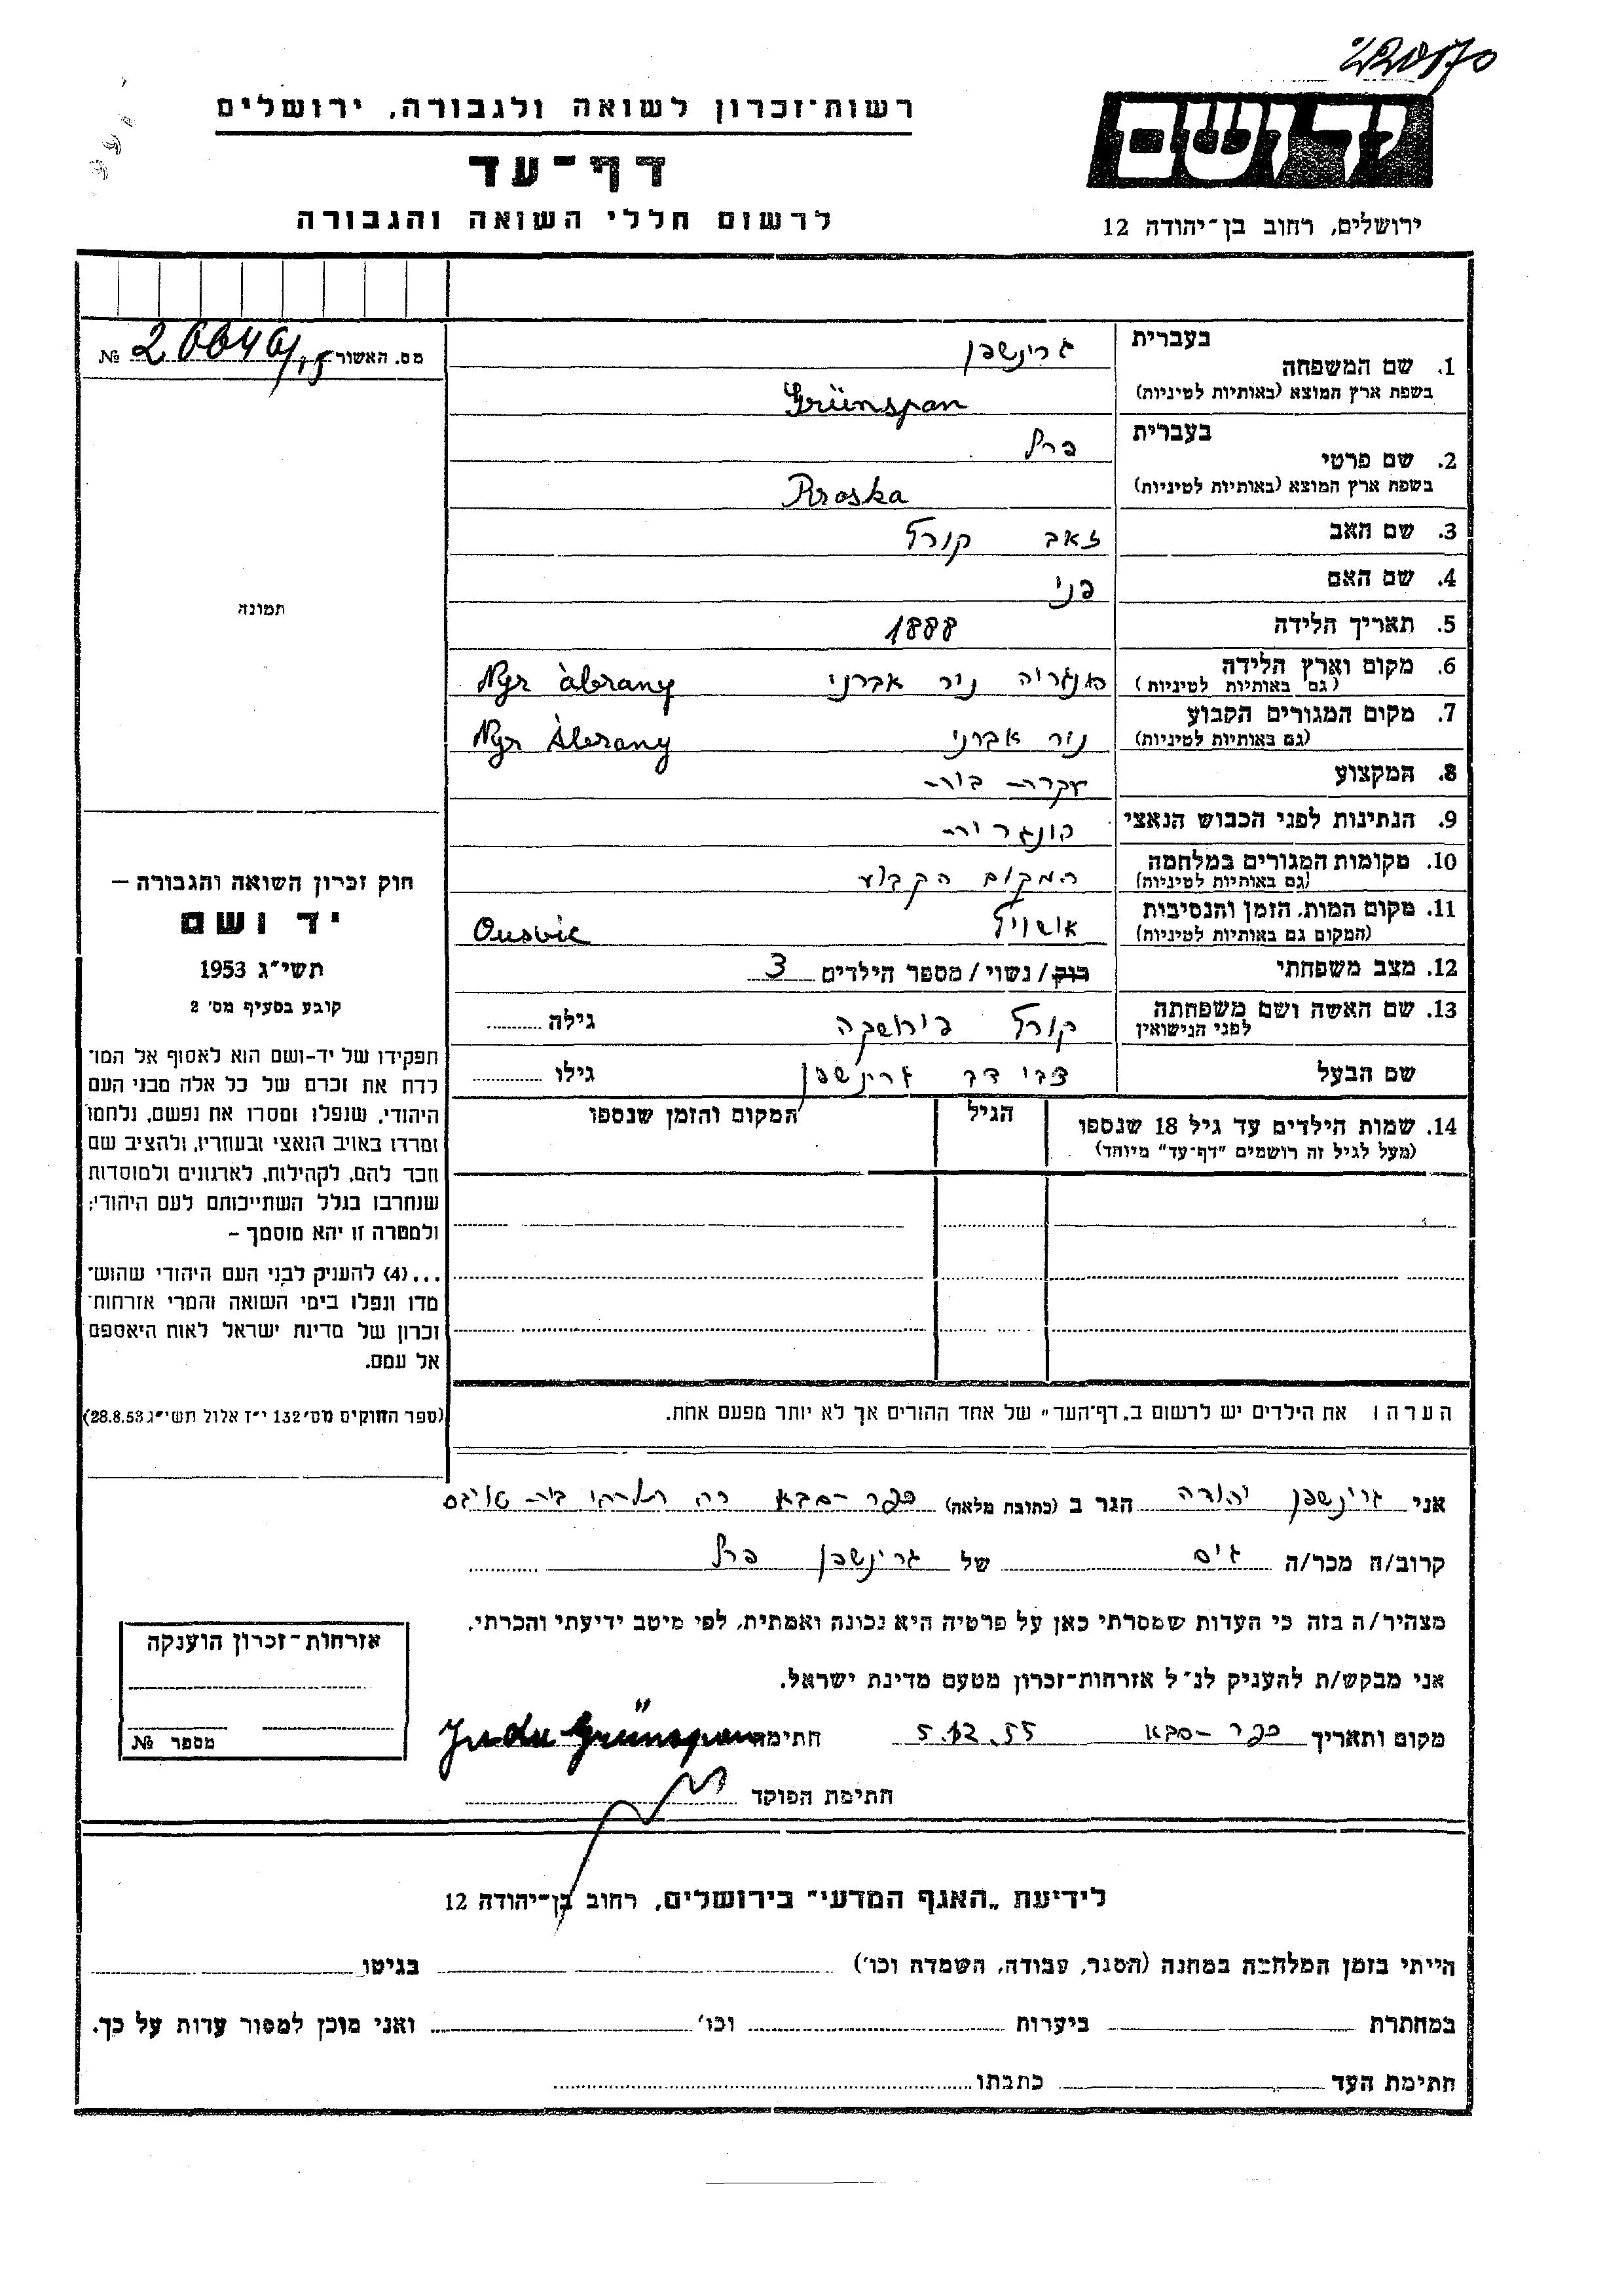 רשות־זכרון לשואה ולגבורה, ירושלים
דף־עד
לרשום חללי השואה והגבורה
יד ושם
ירושלים, רחוב בן־יהודה 12
מס. האשור № 
בעברית גרינשפן
1. שם המשפחה
בשפת ארץ המוצא (באותיות לטיניות) Grünspan
בעברית פרל
2. שם פרטי
בשפת ארץ המוצא (באותיות לטיניות) Piroska
3. שם האב זאב קורל
4. שם האם פני
5. תאריך הלידה 1888
6. מקום וארץ הלידה הונגריה ניר אברני Nyr àbrany
(גם באותיות לטיניות)
7. מקום המגורים הקבוע ניר אברני Nyr Àbrany
(גם באותיות לטיניות)
8. המקצוע עקרת בית
9. הנתינות לפני הכבוש הנאצי הונגרית
10. מקומות המגורים במלחמה המקום הקבוע
(גם באותיות לטיניות)
11. מקום המות, הזמן והנסיבות אושויץ Ousvic
(המקום גם באותיות לטיניות)
12. מצב משפחתי רווק/נשוי/מספר הילדים 3
13. שם האשה ושם משפחתה קורל פירושקה גילה
לפני הנישואין
שם הבעל צבי דב גרינשפן גילו
14. שמות הילדים עד גיל 18 שנספו הגיל המקום והזמן שנספו
(מעל לגיל זה רושמים "דף־עד" מיוחד)
הערה: את הילדים יש לרשום ב„דף־העד" של אחד ההורים אך לא יותר מפעם אחת.
תמונה
חוק זכרון השואה והגבורה —
יד ושם
תשי"ג 1953
קובע בסעיף מס' 2
תפקידו של יד־ושם הוא לאסוף אל המו־
לדת את זכרם של כל אלה מבני העם
היהודי, שנפלו ומסרו את נפשם, נלחמו
ומרדו באויב הנאצי ובעוזריו, ולהציב שם
וזכר להם, לקהילות, לארגונים ולמוסדות
שנחרבו בגלל השתייכותם לעם היהודי;
ולמטרה זו יהא מוסמך –
...(4) להעניק לבני העם היהודי שהוש־
מדו ונפלו בימי השואה והמרי אזרחות־
זכרון של מדינת ישראל לאות היאספם
אל עמם.
(ספר החוקים מס' 132 י"ז אלול תשי"ג 28.8.53)
אני גרינשפן יהודה הגר ב (כתובת מלאה) כפר-סבא
קרוב/ה מכר/ה גיס של גרינשפן פרל
מצהיר/ה בזה כי העדות שמסרתי כאן על פרטיה היא נכונה ואמתית, לפי מיטב ידיעתי והכרתי.
אני מבקש/ת להעניק לנ"ל אזרחות־זכרון מטעם מדינת ישראל.
מקום ותאריך כפר-סבא 5.12.55 חתימה Juda Grünspan
חתימת הפוקד
אזרחות־זכרון הוענקה
מספר №
לידיעת „האגף המדעי" בירושלים, רחוב בן־יהודה 12
הייתי בזמן המלחמה במחנה (הסגר, עבודה, השמדה וכו') בגיטו
במחתרת ביערות וכו' ואני מוכן למסור עדות על כך.
חתימת העד כתבתו